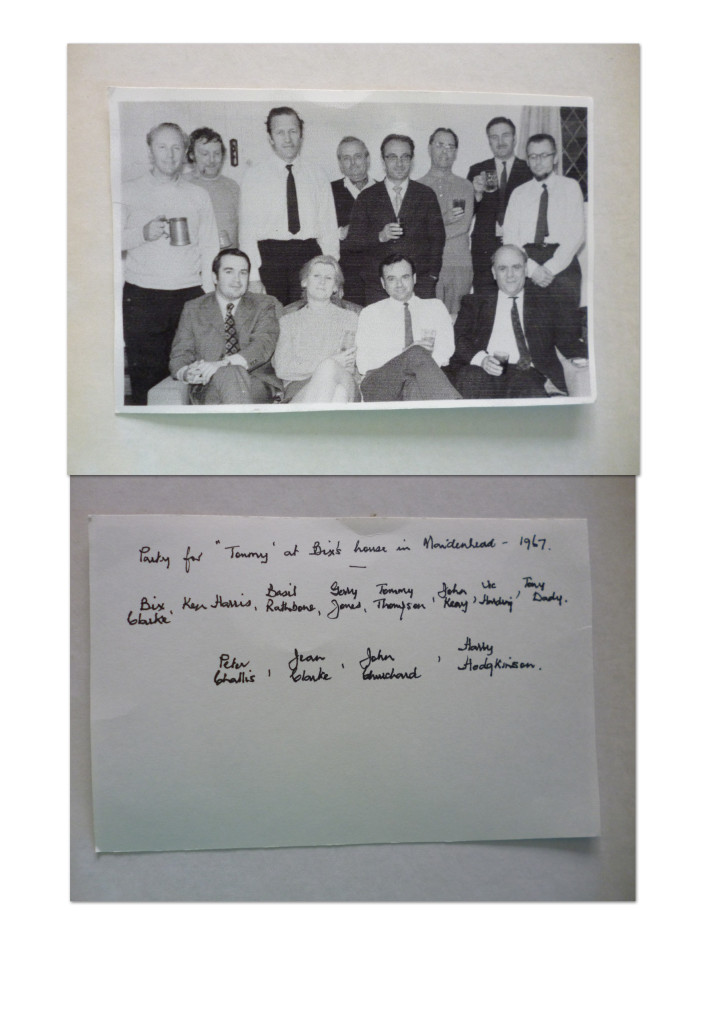 Party for "Tommy' at Bix's house in Maidenhead - 1967.
Bix Clarke, Ken Harris, Basil Rathbone, Garry Jones, Tommy Thompson, John Keary, Vic Harding, Tony Dady.
Peter Challis, Jean Clarke, John Chuichard, Harry Hodgkinson.